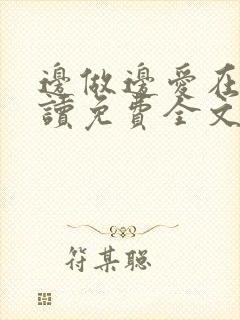 邊做邊愛在
讀免費全文
符某聪